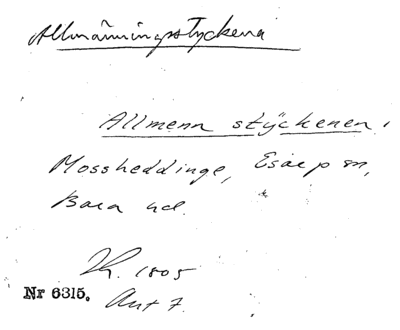 Allmänningsstyckena
Allmenn stÿckenen,
Mossheddinge, Esarp sn,
Bara hd.
Th. 1805
Nr 6315. Ant 7.